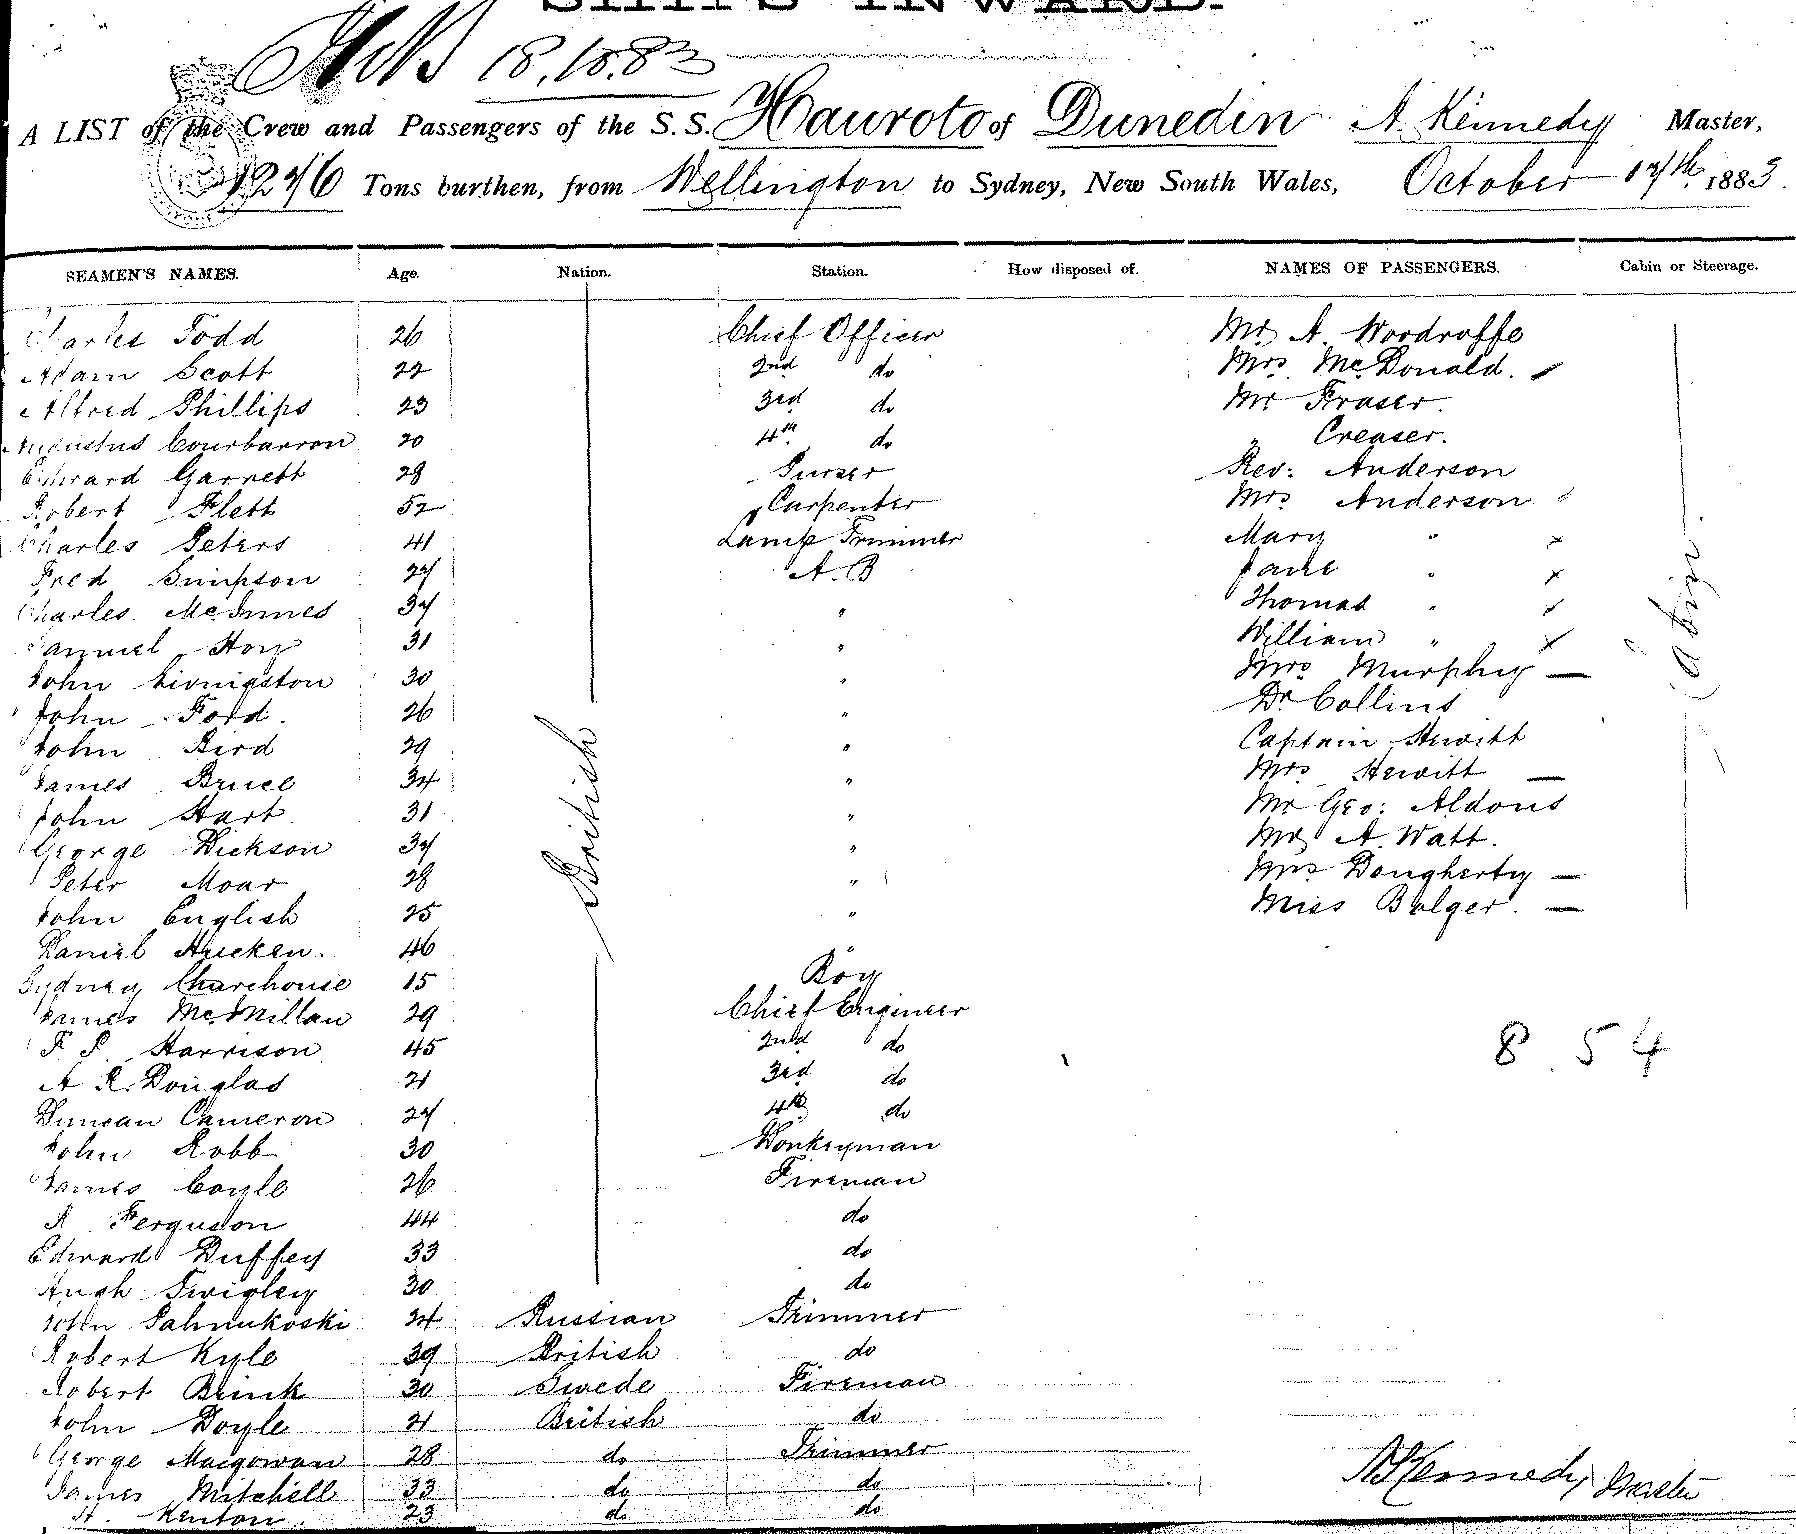 SHIPS INWARD.
18.10.83
A LIST of the Crew and Passengers of the S.S. Hauroto of Dunedin A. Kennedy Master,
1276 Tons burthen, from Wellington to Sydney, New South Wales, October 17th 1883.
SEAMEN'S NAMES. Age. Nation. Station. How disposed of. NAMES OF PASSENGERS. Cabin or Steerage.
Charles Todd 26 Chief Officer Mr A. Woodroffe
Adam Scott 22 2nd do Mrs McDonald.
Alfred Phillips 23 3rd do Mr Fraser.
Augustus Courbarron 20 4th do " Creaser.
Edward Garrett 28 Purser Rev: Anderson
Robert Flett 52 Carpenter Mrs Anderson
Charles Peters 41 Lamp Trimmer Mary "
Fred Simpson 27 A.B Jane "
Charles McInnes 37 " Thomas "
Samuel Hoy 31 " William "
John Livingston 30 " Mrs Murphy
John Ford. 26 " Dr Collins
John Bird 29 " Captain Hewitt
James Bruce 34 " Mrs Hewitt
John Hart 31 " Mr Geo: Aldous
George Dickson 37 " Mr A. Watt.
Peter Moar 28 " Mrs Dougherty
John English 25 " Miss Bolger.
British
Cabin
Daniel Hucken. 46 "
Sydney Charehouse 15 Boy
James McMillan 29 Chief Engineer
F. P. Harrison 45 2nd do
A R. Douglas 21 3rd do
Duncan Cameron 27 4th do
8.54
John Robb 30 Donkeyman
James Coyle 26 Fireman
A Ferguson 44 do
Edward Duffey 33 do
Hugh Swigley 30 do
John Pahnukoski 24 Russian Trimmer
Robert Kyle 39 British do
Robert Brink 30 Swede Fireman
John Doyle 21 British do
George Macgowan 28 do Trimmer
James Mitchell 33 do do
H. Kenton. 23 do do
A Kennedy Master